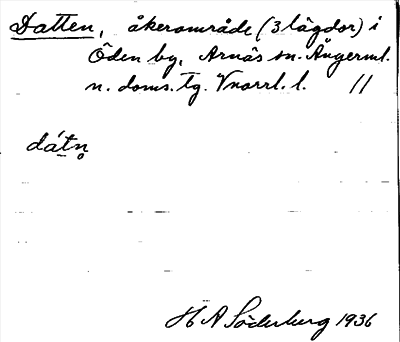 Datten, åkerområde (3 lägdor) i
Öden by, Arnäs sn. Ångerml.
n. doms. tg. Vnorrl. l. //
dátn̥
H A Söderberg 1936